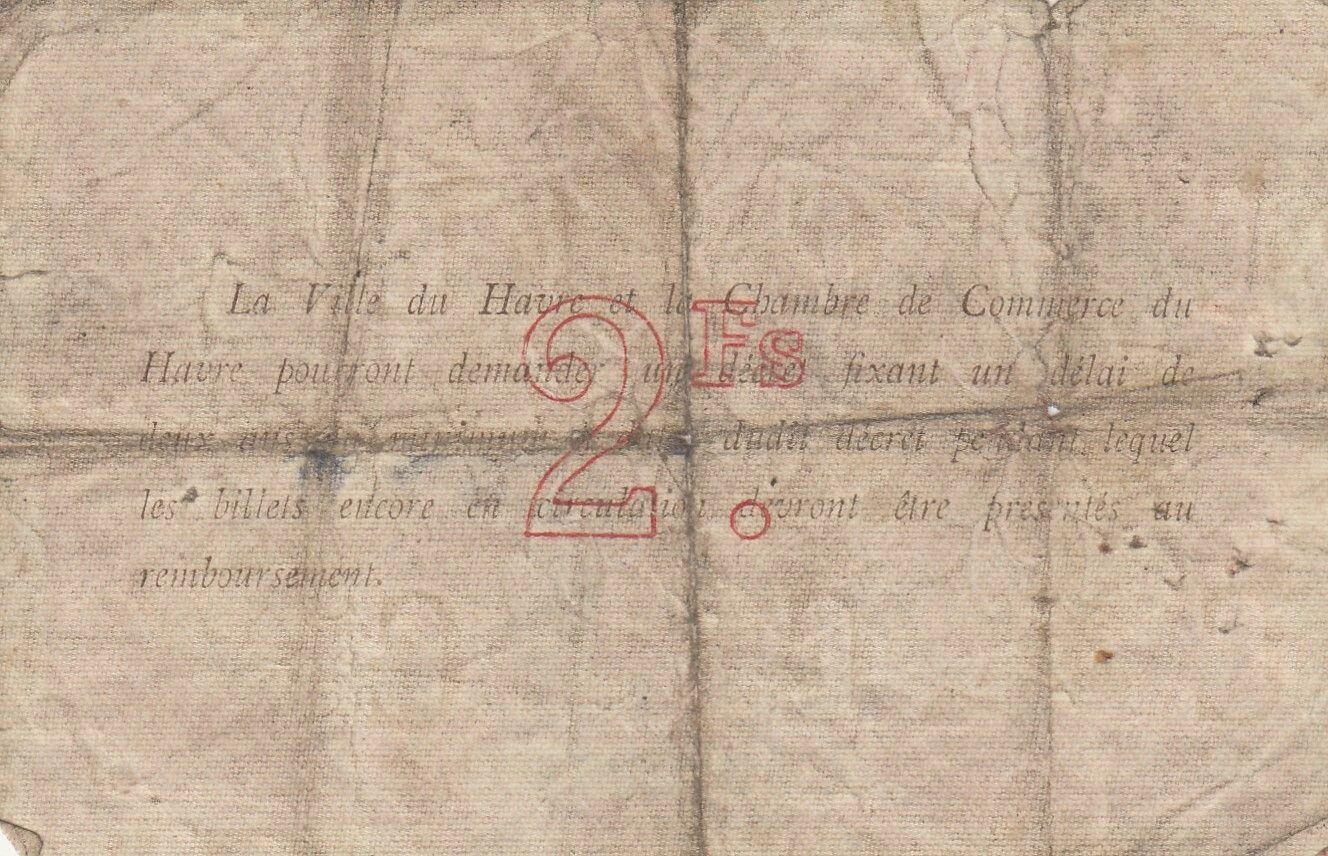 La Ville du Havre et la Chambre de Commerce du
Havre pourront demander un décret fixant un délai de
deux ans au minimum dudit décret pendant lequel
les billets encore en circulation devront être présentés au
remboursement.
2 Fs.